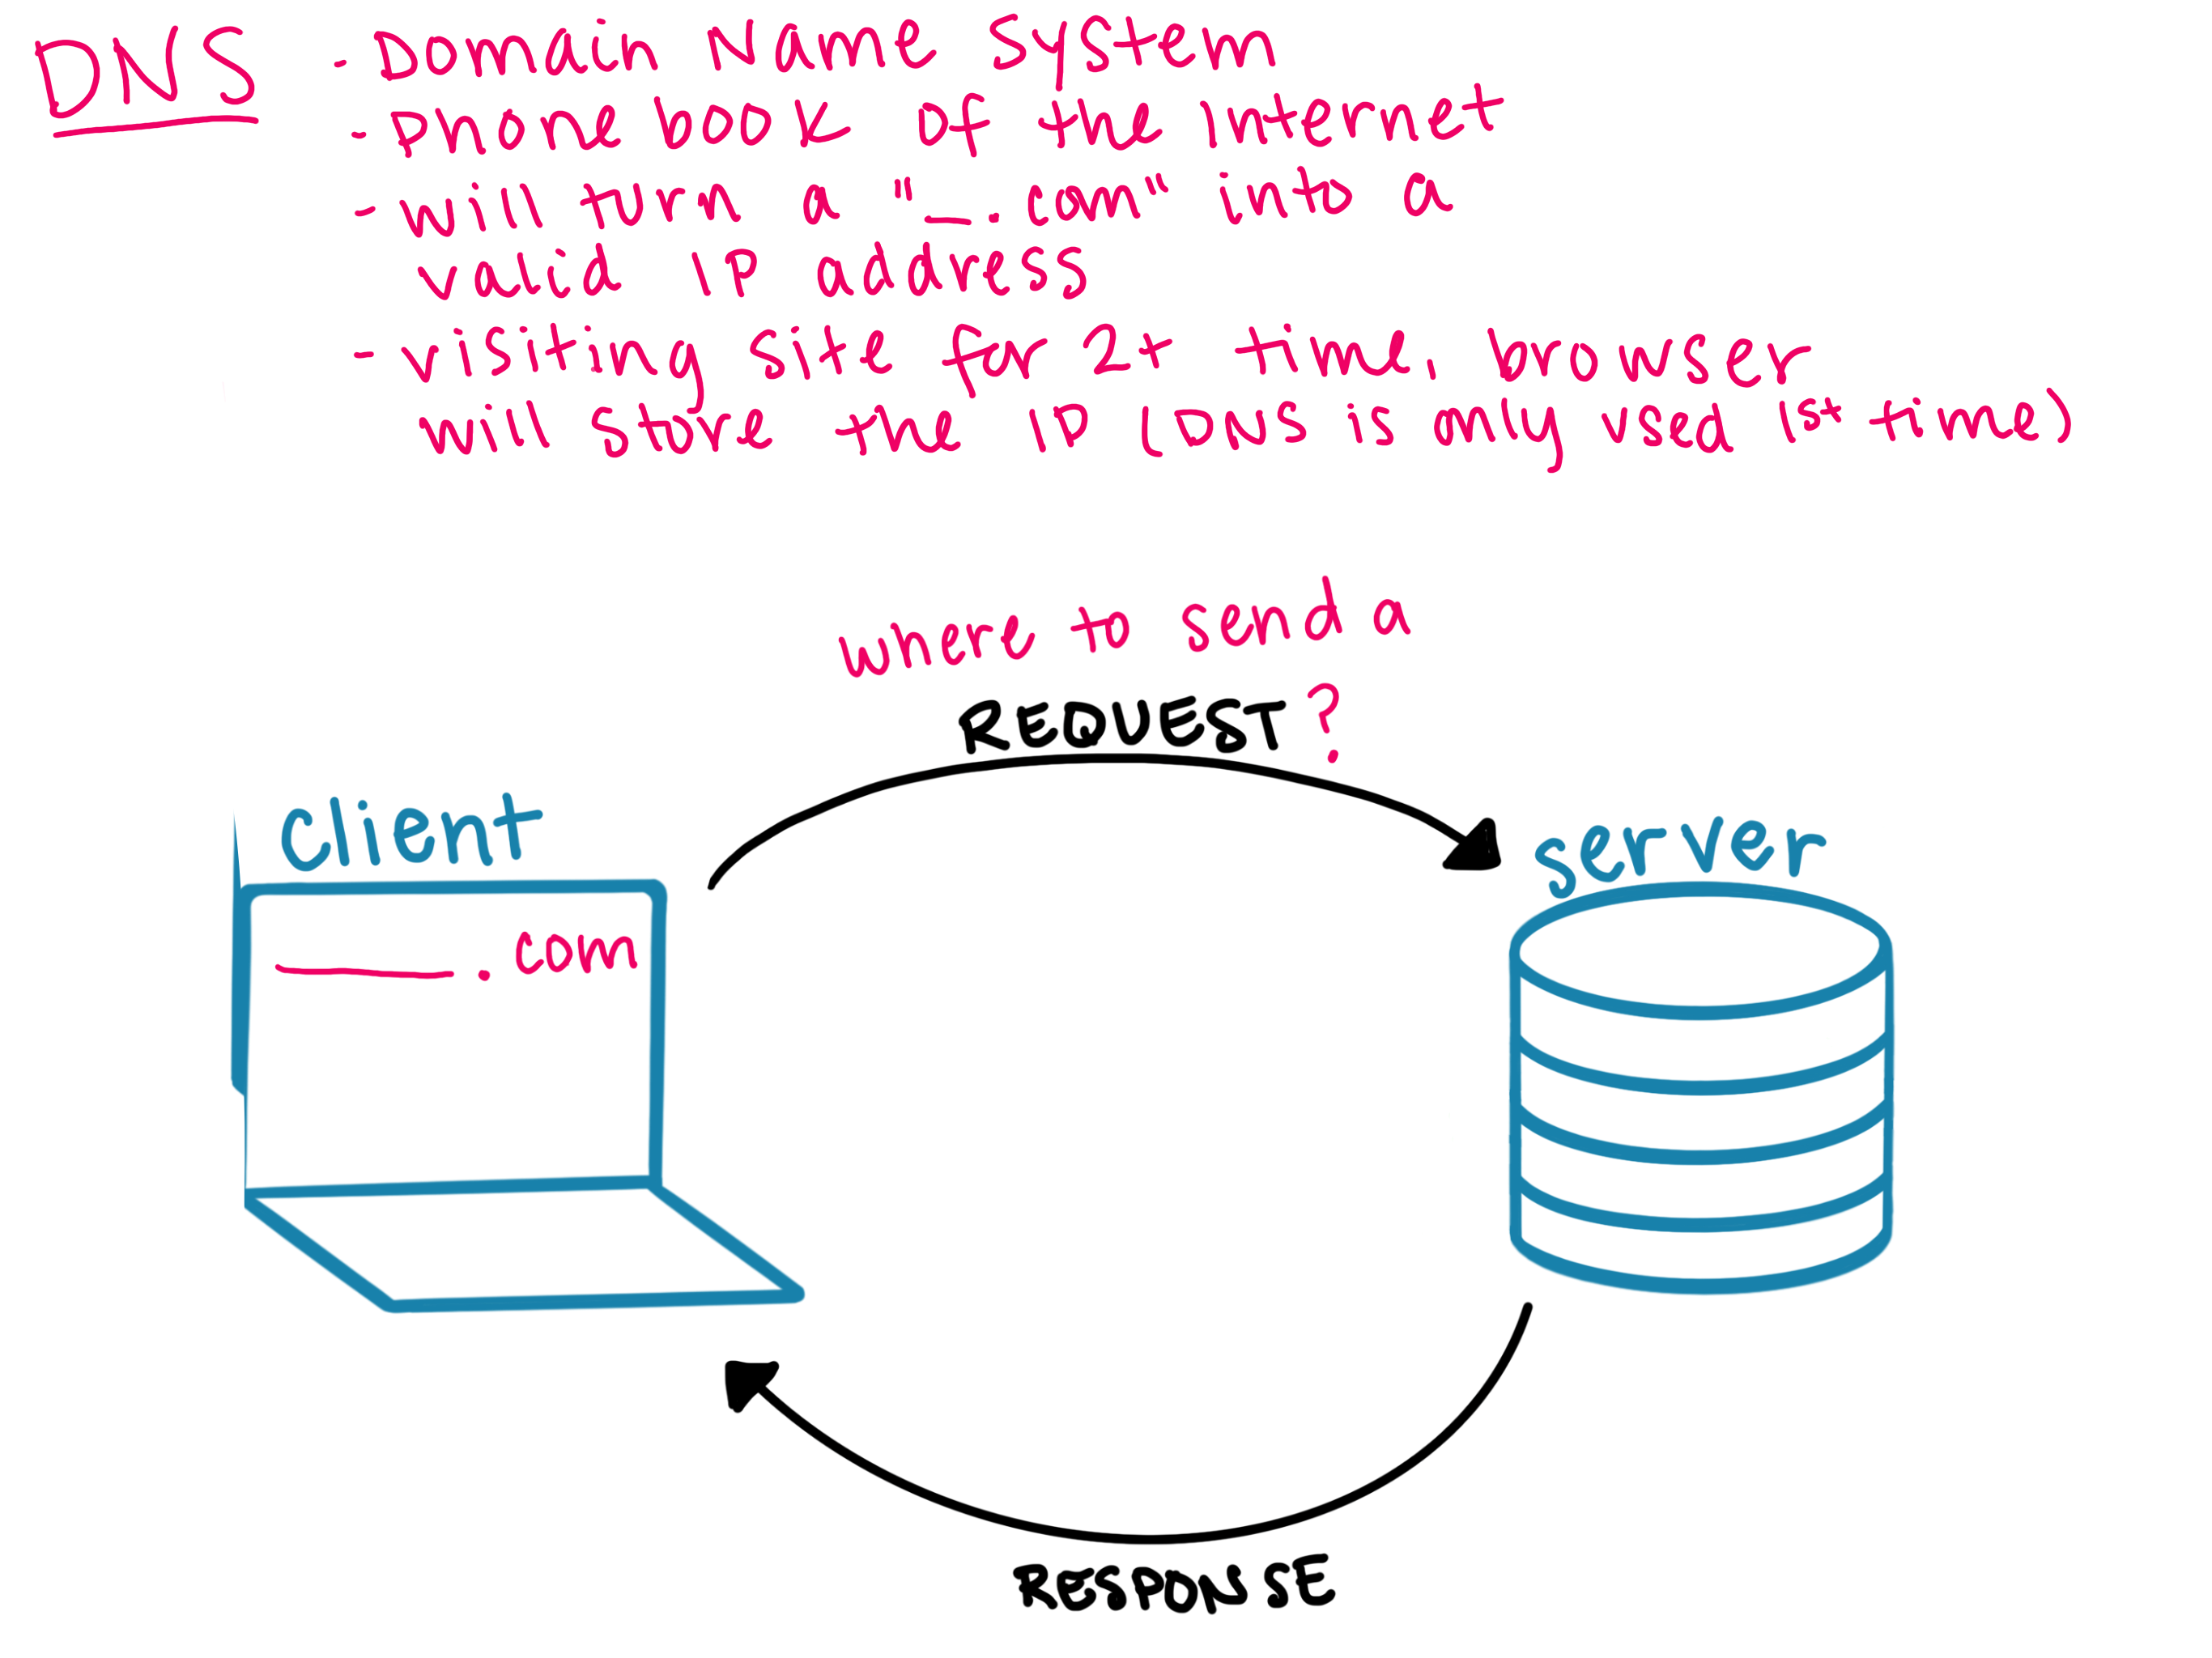 DNS - Domain Name System
- Phone book of the internet
- will turn a "_.com" into a
valid IP address
- visiting site for 2+ time, browser
will store the IP (DNS is only used 1st time)
where to send a
REQUEST?
client
server
______.com
RESPONSE